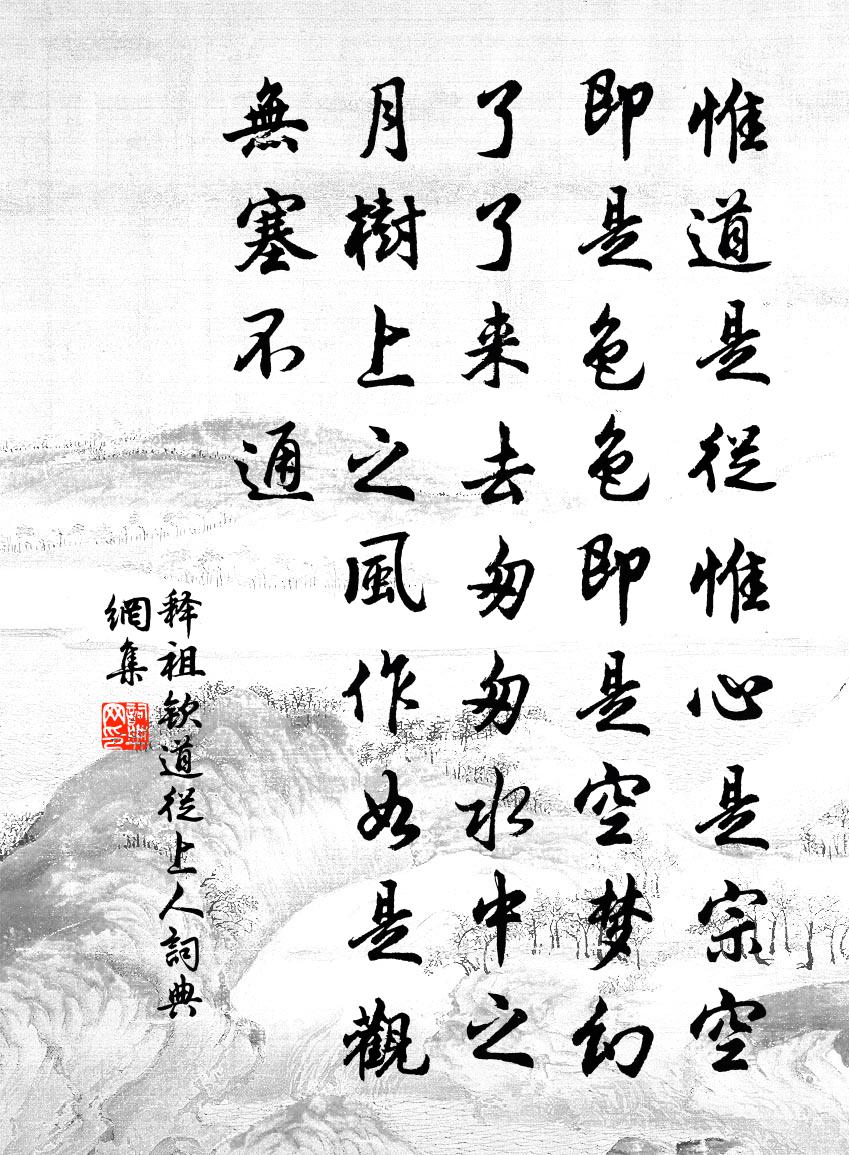 惟道是從惟心是宗空
即是色色即是空梦幻
了了来去匆匆水中之
月樹上之風作如是觀
無塞不通
释祖钦道從上人詞典
網集